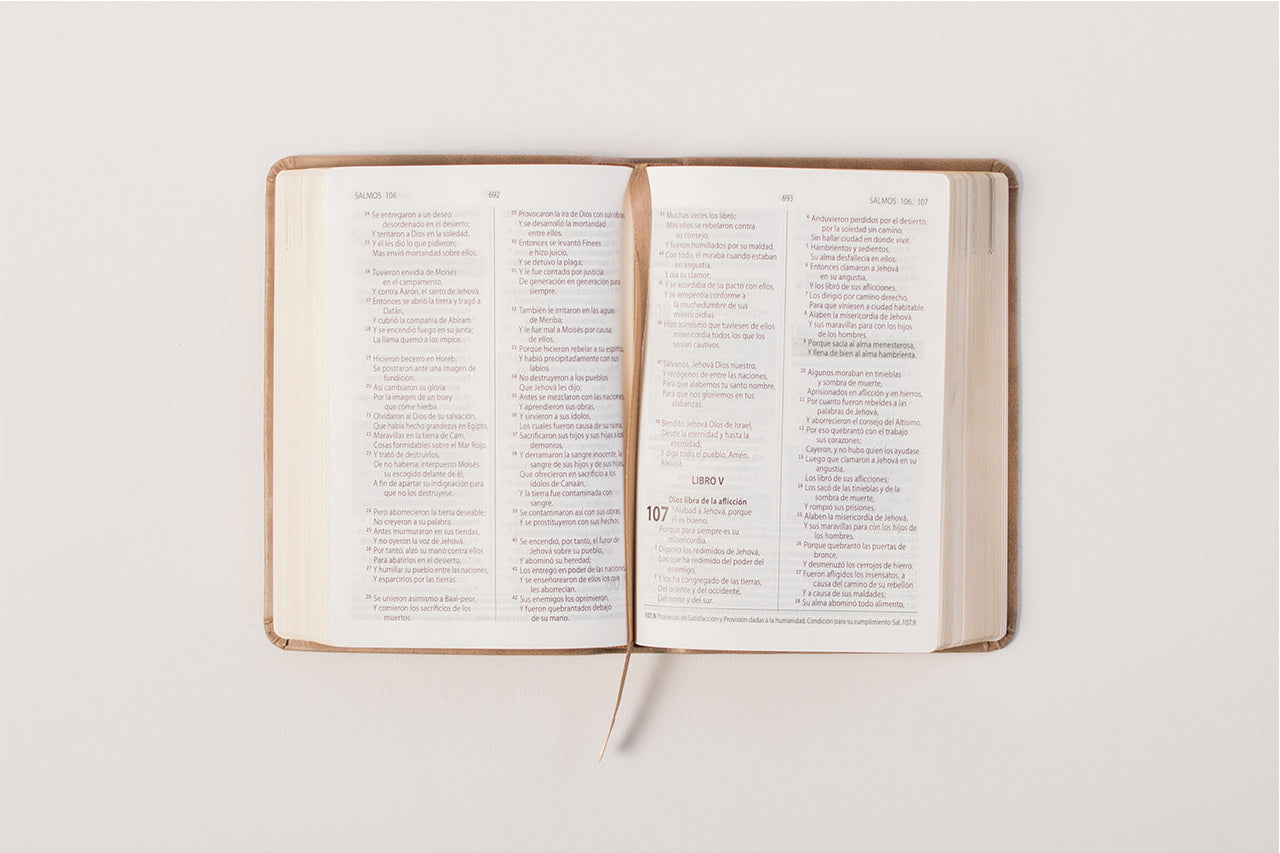 SALMOS 106
692
14 Se entregaron a un deseo
desordenado en el desierto;
Y tentaron a Dios en la soledad.
15 Y él les dio lo que pidieron;
Mas envió mortandad sobre ellos.
16 Tuvieron envidia de Moisés
en el campamento,
Y contra Aarón, el santo de Jehová.
17 Entonces se abrió la tierra y tragó a
Datán,
Y cubrió la compañía de Abiram.
18 Y se encendió fuego en su junta;
La llama quemó a los impíos.
19 Hicieron becerro en Horeb,
Se postraron ante una imagen de
fundición.
20 Así cambiaron su gloria
Por la imagen de un buey
que come hierba.
21 Olvidaron al Dios de su salvación,
Que había hecho grandezas en Egipto,
22 Maravillas en la tierra de Cam,
Cosas formidables sobre el Mar Rojo.
23 Y trató de destruirlos,
De no haberse interpuesto Moisés
su escogido delante de él,
A fin de apartar su indignación para
que no los destruyese.
24 Pero aborrecieron la tierra deseable;
No creyeron a su palabra,
25 Antes murmuraron en sus tiendas,
Y no oyeron la voz de Jehová.
26 Por tanto, alzó su mano contra ellos
Para abatirlos en el desierto,
27 Y humillar su pueblo entre las naciones,
Y esparcirlos por las tierras.
28 Se unieron asimismo a Baal-peor,
Y comieron los sacrificios de los
muertos.
29 Provocaron la ira de Dios con sus obras,
Y se desarrolló la mortandad
entre ellos.
30 Entonces se levantó Finees
e hizo juicio,
Y se detuvo la plaga;
31 Y le fue contado por justicia
De generación en generación para
siempre.
32 También le irritaron en las aguas
de Meriba;
Y le fue mal a Moisés por causa
de ellos,
33 Porque hicieron rebelar a su espíritu,
Y habló precipitadamente con sus
labios.
34 No destruyeron a los pueblos
Que Jehová les dijo;
35 Antes se mezclaron con las naciones,
Y aprendieron sus obras,
36 Y sirvieron a sus ídolos,
Los cuales fueron causa de su ruina.
37 Sacrificaron sus hijos y sus hijas a los
demonios,
38 Y derramaron la sangre inocente, la
sangre de sus hijos y de sus hijas,
Que ofrecieron en sacrificio a los
ídolos de Canaán,
Y la tierra fue contaminada con
sangre.
39 Se contaminaron así con sus obras,
Y se prostituyeron con sus hechos.
40 Se encendió, por tanto, el furor de
Jehová sobre su pueblo,
Y abominó su heredad;
41 Los entregó en poder de las naciones,
Y se enseñorearon de ellos los que
les aborrecían.
42 Sus enemigos los oprimieron,
Y fueron quebrantados debajo
de su mano.
693
SALMOS 106, 107
43 Muchas veces los libró;
Mas ellos se rebelaron contra
su consejo,
Y fueron humillados por su maldad.
44 Con todo, él miraba cuando estaban
en angustia,
Y oía su clamor;
45 Y se acordaba de su pacto con ellos,
Y se arrepentía conforme a
la muchedumbre de sus
misericordias.
46 Hizo asimismo que tuviesen de ellos
misericordia todos los que los
tenían cautivos.
47 Sálvanos, Jehová Dios nuestro,
Y recógenos de entre las naciones,
Para que alabemos tu santo nombre,
Para que nos gloriemos en tus
alabanzas.
48 Bendito Jehová Dios de Israel,
Desde la eternidad y hasta la
eternidad;
Y diga todo el pueblo, Amén.
Aleluya.
LIBRO V
Dios libra de la aflicción
107 1 Alabad a Jehová, porque
él es bueno;
Porque para siempre es su
misericordia.
2 Díganlo los redimidos de Jehová,
Los que ha redimido del poder del
enemigo,
3 Y los ha congregado de las tierras,
Del oriente y del occidente,
Del norte y del sur.
4 Anduvieron perdidos por el desierto,
por la soledad sin camino,
Sin hallar ciudad en donde vivir.
5 Hambrientos y sedientos,
Su alma desfallecía en ellos.
6 Entonces clamaron a Jehová
en su angustia,
Y los libró de sus aflicciones.
7 Los dirigió por camino derecho,
Para que viniesen a ciudad habitable.
8 Alaben la misericordia de Jehová,
Y sus maravillas para con los hijos
de los hombres.
9 Porque sacia al alma menesterosa,
Y llena de bien al alma hambrienta.
10 Algunos moraban en tinieblas
y sombra de muerte,
Aprisionados en aflicción y en hierros,
11 Por cuanto fueron rebeldes a las
palabras de Jehová,
Y aborrecieron el consejo del Altísimo.
12 Por eso quebrantó con el trabajo
sus corazones;
Cayeron, y no hubo quien los ayudase.
13 Luego que clamaron a Jehová en su
angustia,
Los libró de sus aflicciones;
14 Los sacó de las tinieblas y de la
sombra de muerte,
Y rompió sus prisiones.
15 Alaben la misericordia de Jehová,
Y sus maravillas para con los hijos de
los hombres.
16 Porque quebrantó las puertas de
bronce,
Y desmenuzó los cerrojos de hierro.
17 Fueron afligidos los insensatos, a
causa del camino de su rebelión
Y a causa de sus maldades;
18 Su alma abominó todo alimento,
107.9 Promesas de Satisfacción y Provisión dadas a la humanidad. Condición para su cumplimiento: Sal. 107:9.